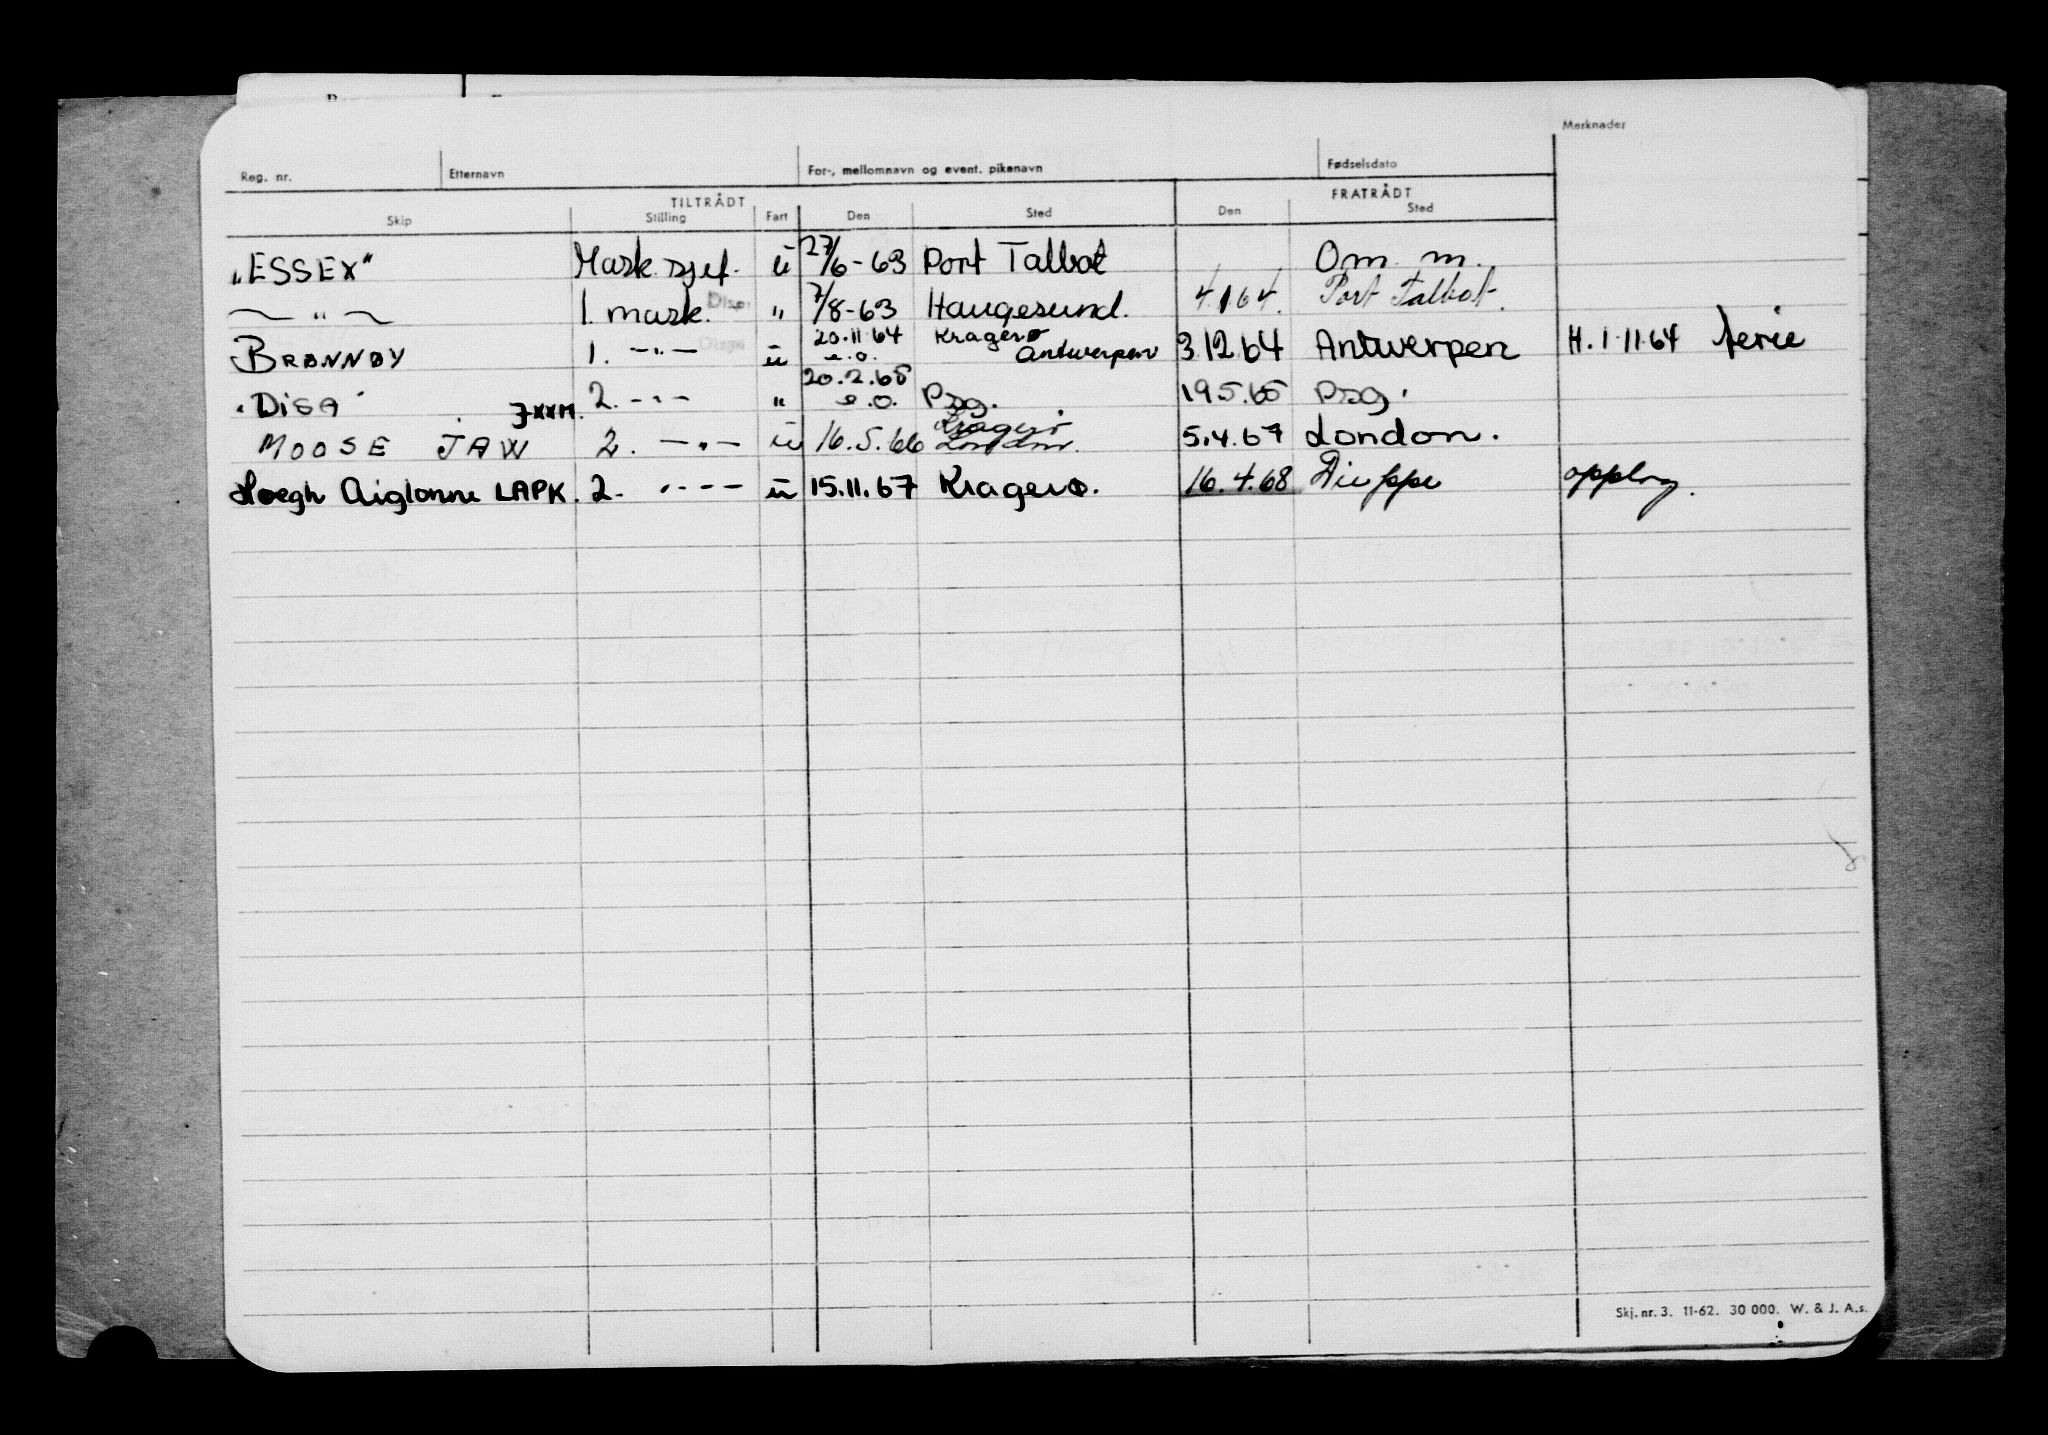 Merknader
Reg. nr. Etternavn For-, mellomnavn og event. pikenavn Fødselsdato
TILTRÅDT FRATRÅDT
Skip Stilling Fart Den Sted Den Sted
"ESSEX" Mask. sjef. ü 27/6-63 Port Talbot Om. m.
— " — 1. mask. Disp. " 7/8-63 Haugesund. 4.1.64. Port Talbot.
BRØNNØY 1. —"— ü 20.11.64 e.o. Kragerø Antwerpen 3.12.64 Antwerpen H. 1.11.64 ferie
"Disa" JXXM 2. —"— " 20.2.65 e.o. Psg. 19.5.65 Psg.
MOOSE JAW 2. —"— ü 16.5.66 Kragerø London. 5.4.67 London.
Hoegh Aiglonne LAPK. 2. —"— ü 15.11.67 Kragerø. 16.4.68 Dieppe opplag.
Skj. nr. 3. 11-62. 30 000. W. & J. A.s.